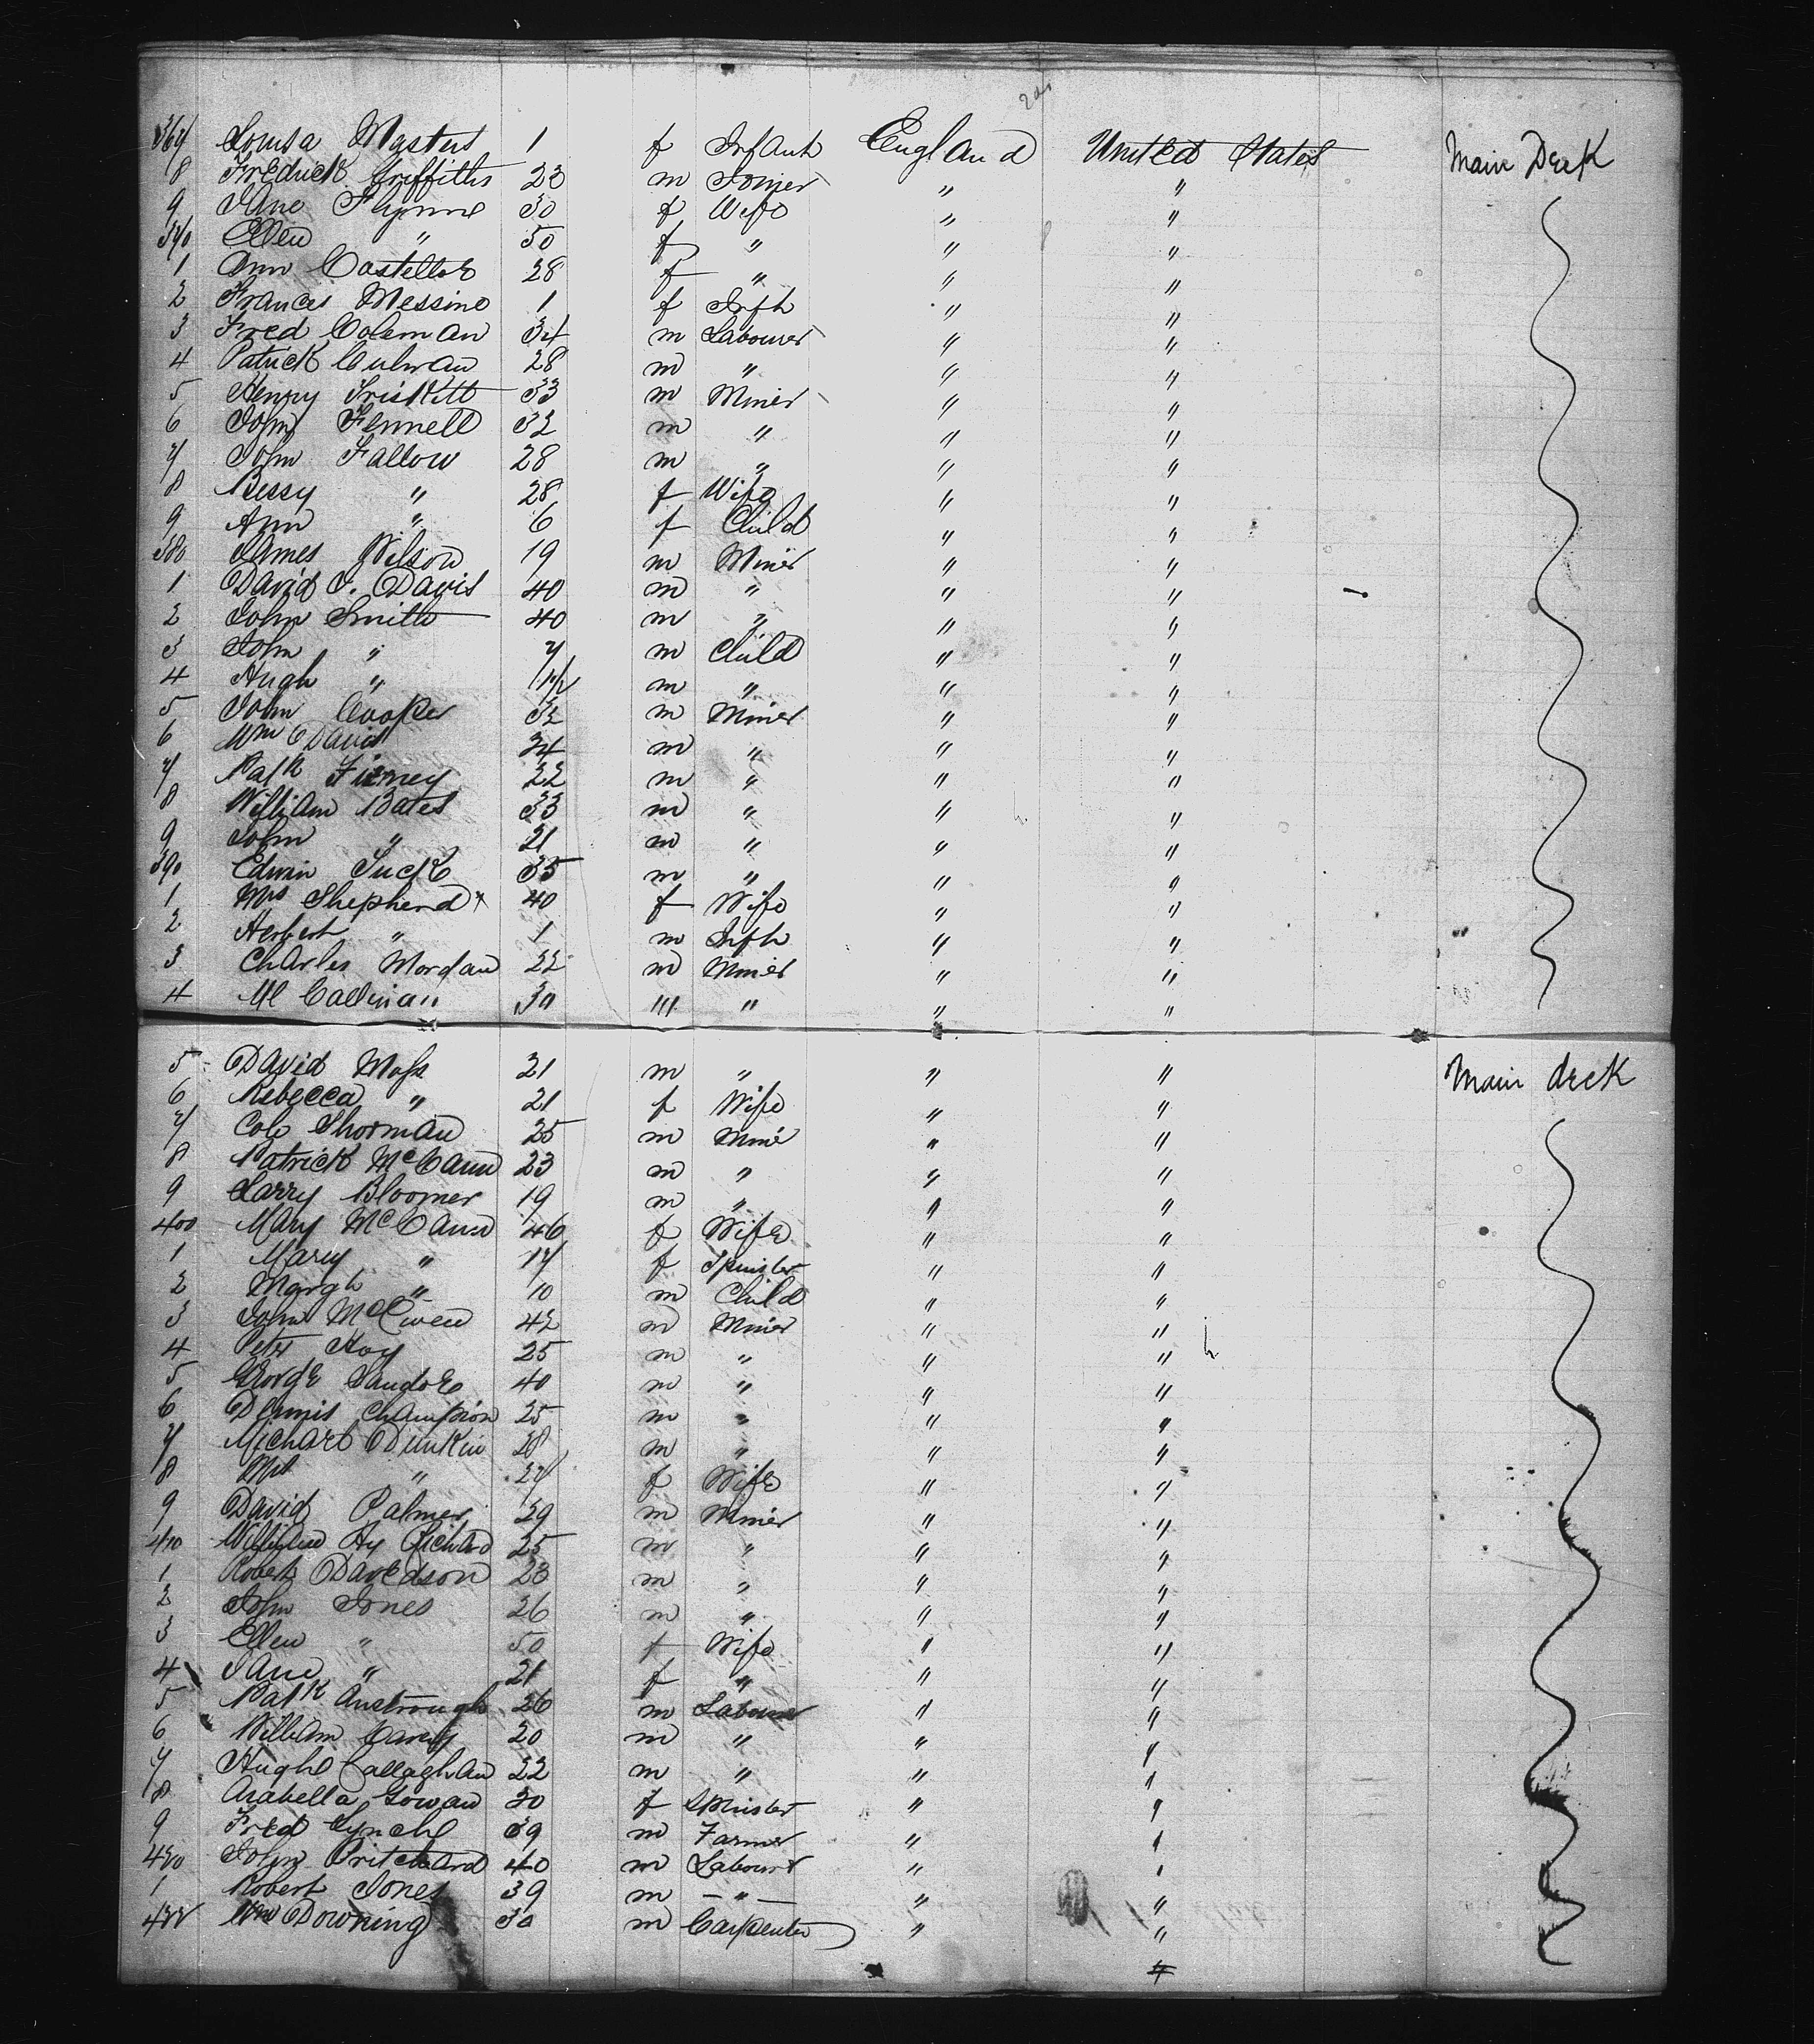 367 Louisa Masters 1 f Infant England United States Main Deck
8 Fredrick Griffiths 23 m Joiner " "
9 Jane Flynne 30 f Wife " "
370 Ellen " 50 f " " "
1 Ann Costelloe 28 f " " "
2 Frances Messine 1 f Infh " "
3 Fred Coleman 34 m Labourer " "
4 Patrick Culnan 28 m " " "
5 Henry 33 m Miner " "
6 John Fennell 32 m " " "
7 John Fallow 28 m " " "
8 Bessy " 28 f Wife " "
9 Ann " 6 f Child " "
380 James Wilson 19 m Miner " "
1 David J. Davis 40 m " " "
2 John Smith 40 m " " "
3 John " 7 m Child " "
4 Hugh " m " " "
5 John Cooper 32 m Miner " "
6 Wm David 24 m " " "
7 Patk 22 m " " "
8 William Bates 33 m " " "
9 John " 21 m " " "
390 Edwin Tuck 35 m " " "
1 Mrs Shepherd 40 f Wife " "
2 Herbert " 1 m Infh " "
3 Charles Mordan 22 m Miner " "
4 Ml Callinan 30 m " " "
5 David Moss 21 m " " " Main deck
6 Rebecca " 21 f Wife " "
7 Cole Thorman 25 m Miner " "
8 Patrick McCann 23 m " " "
9 Larry Bloomer 19 m " " "
400 Mary McCann 46 f Wife " "
1 Mary " 17 f Spinster " "
2 Margh " 10 m Child " "
3 John 42 m Miner " "
4 Peter Hoy 25 m " " "
5 George 40 m " " "
6 Dennis Champion 25 m " " "
7 Michael Dunkin 28 m " " "
8 Mrs " 27 f Wife " "
9 David Palmer 29 m Miner " "
410 William Hy Richard 25 m " " "
1 Robert Davedson 23 m " " "
2 John Jones 26 m " " "
3 Ellen " 50 f Wife " "
4 Jane " 21 f " " "
5 Patk 26 m Labourer " "
6 William Carey 20 m " " "
7 Hugh Callaghan 22 m " " "
8 Arabella Gowan 30 f Spinster " "
9 Fred Lynch 39 m Farmer " "
420 John Pritchard 40 m Labourer " "
1 Robert Jones 39 m - " - " "
422 Wm Downing 30 m Carpenter " "